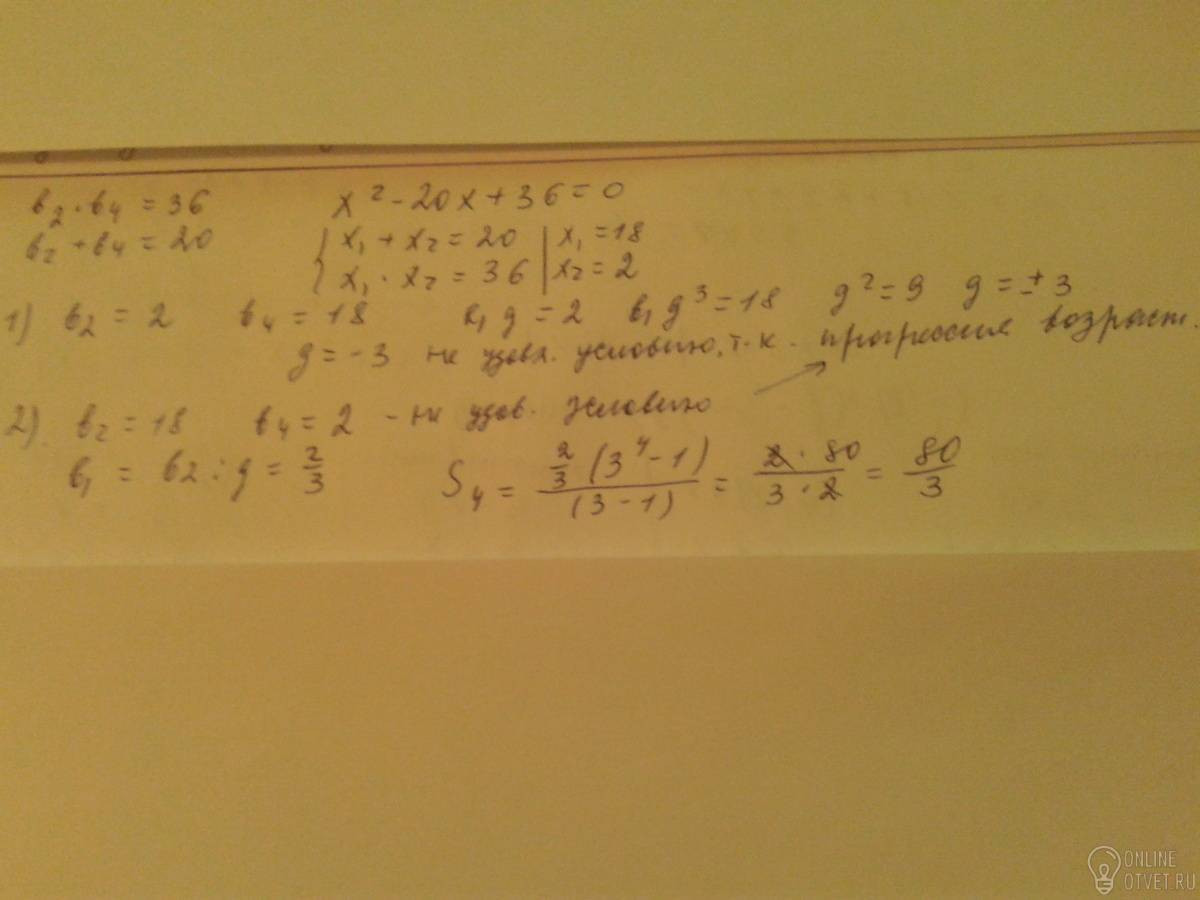 в₂·в₄ = 36    x² - 20x + 36 = 0
в₂ + в₄ = 20    { x₁ + x₂ = 20 | x₁ = 18
x₁ · x₂ = 36 | x₂ = 2
1) в₂ = 2    в₄ = 18    в₁g = 2    в₁g³ = 18    g² = 9    g = ±3
g = -3 не удовл. условию, т.к. прогрессия возраст.
2) в₂ = 18    в₄ = 2 - не удов. условию
в₁ = в₂ : g = 2/3    S₄ = (2/3 (3⁴ - 1))/((3 - 1)) = (2 · 80)/(3 · 2) = 80/3
ONLINE
OTVET.RU